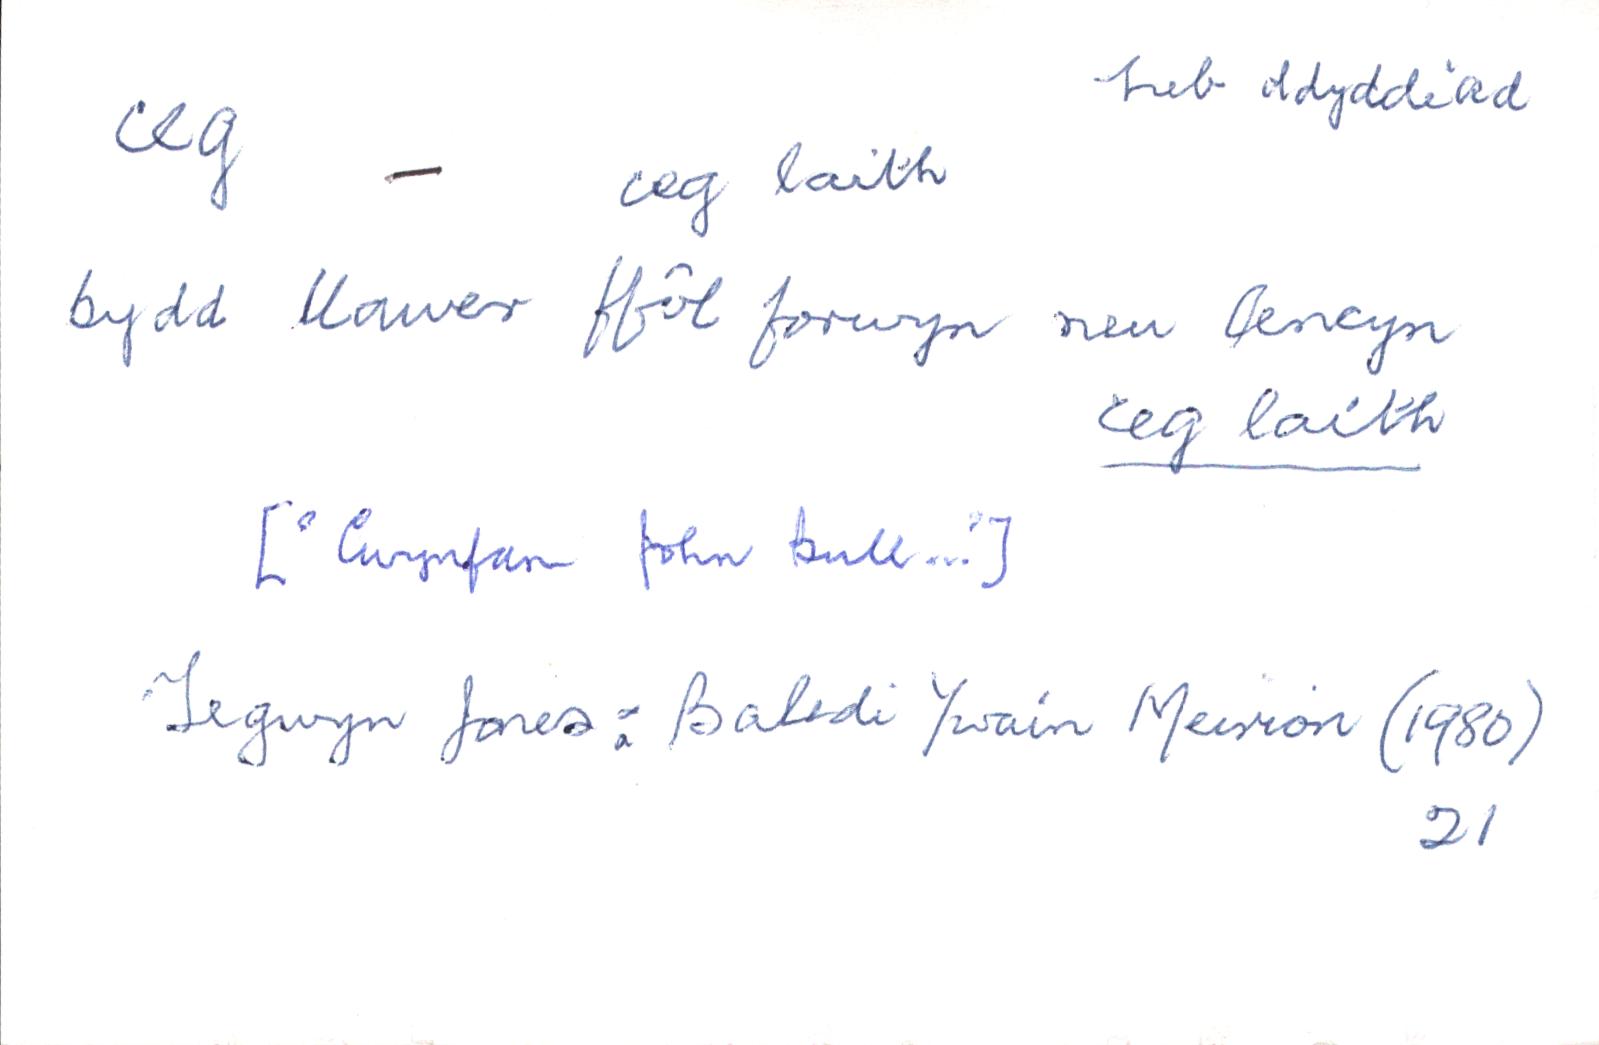 heb ddyddiad
ceg — ceg laith
bydd llawer ffôl forwyn neu Gencyn
ceg laith
["Cwynfan John Bull..."]
Tegwyn Jones: Baledi Ywain Meirion (1980)
21